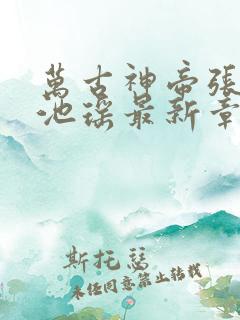 萬古神帝張
池瑤最新章
斯托瑟
未经同意禁止转载